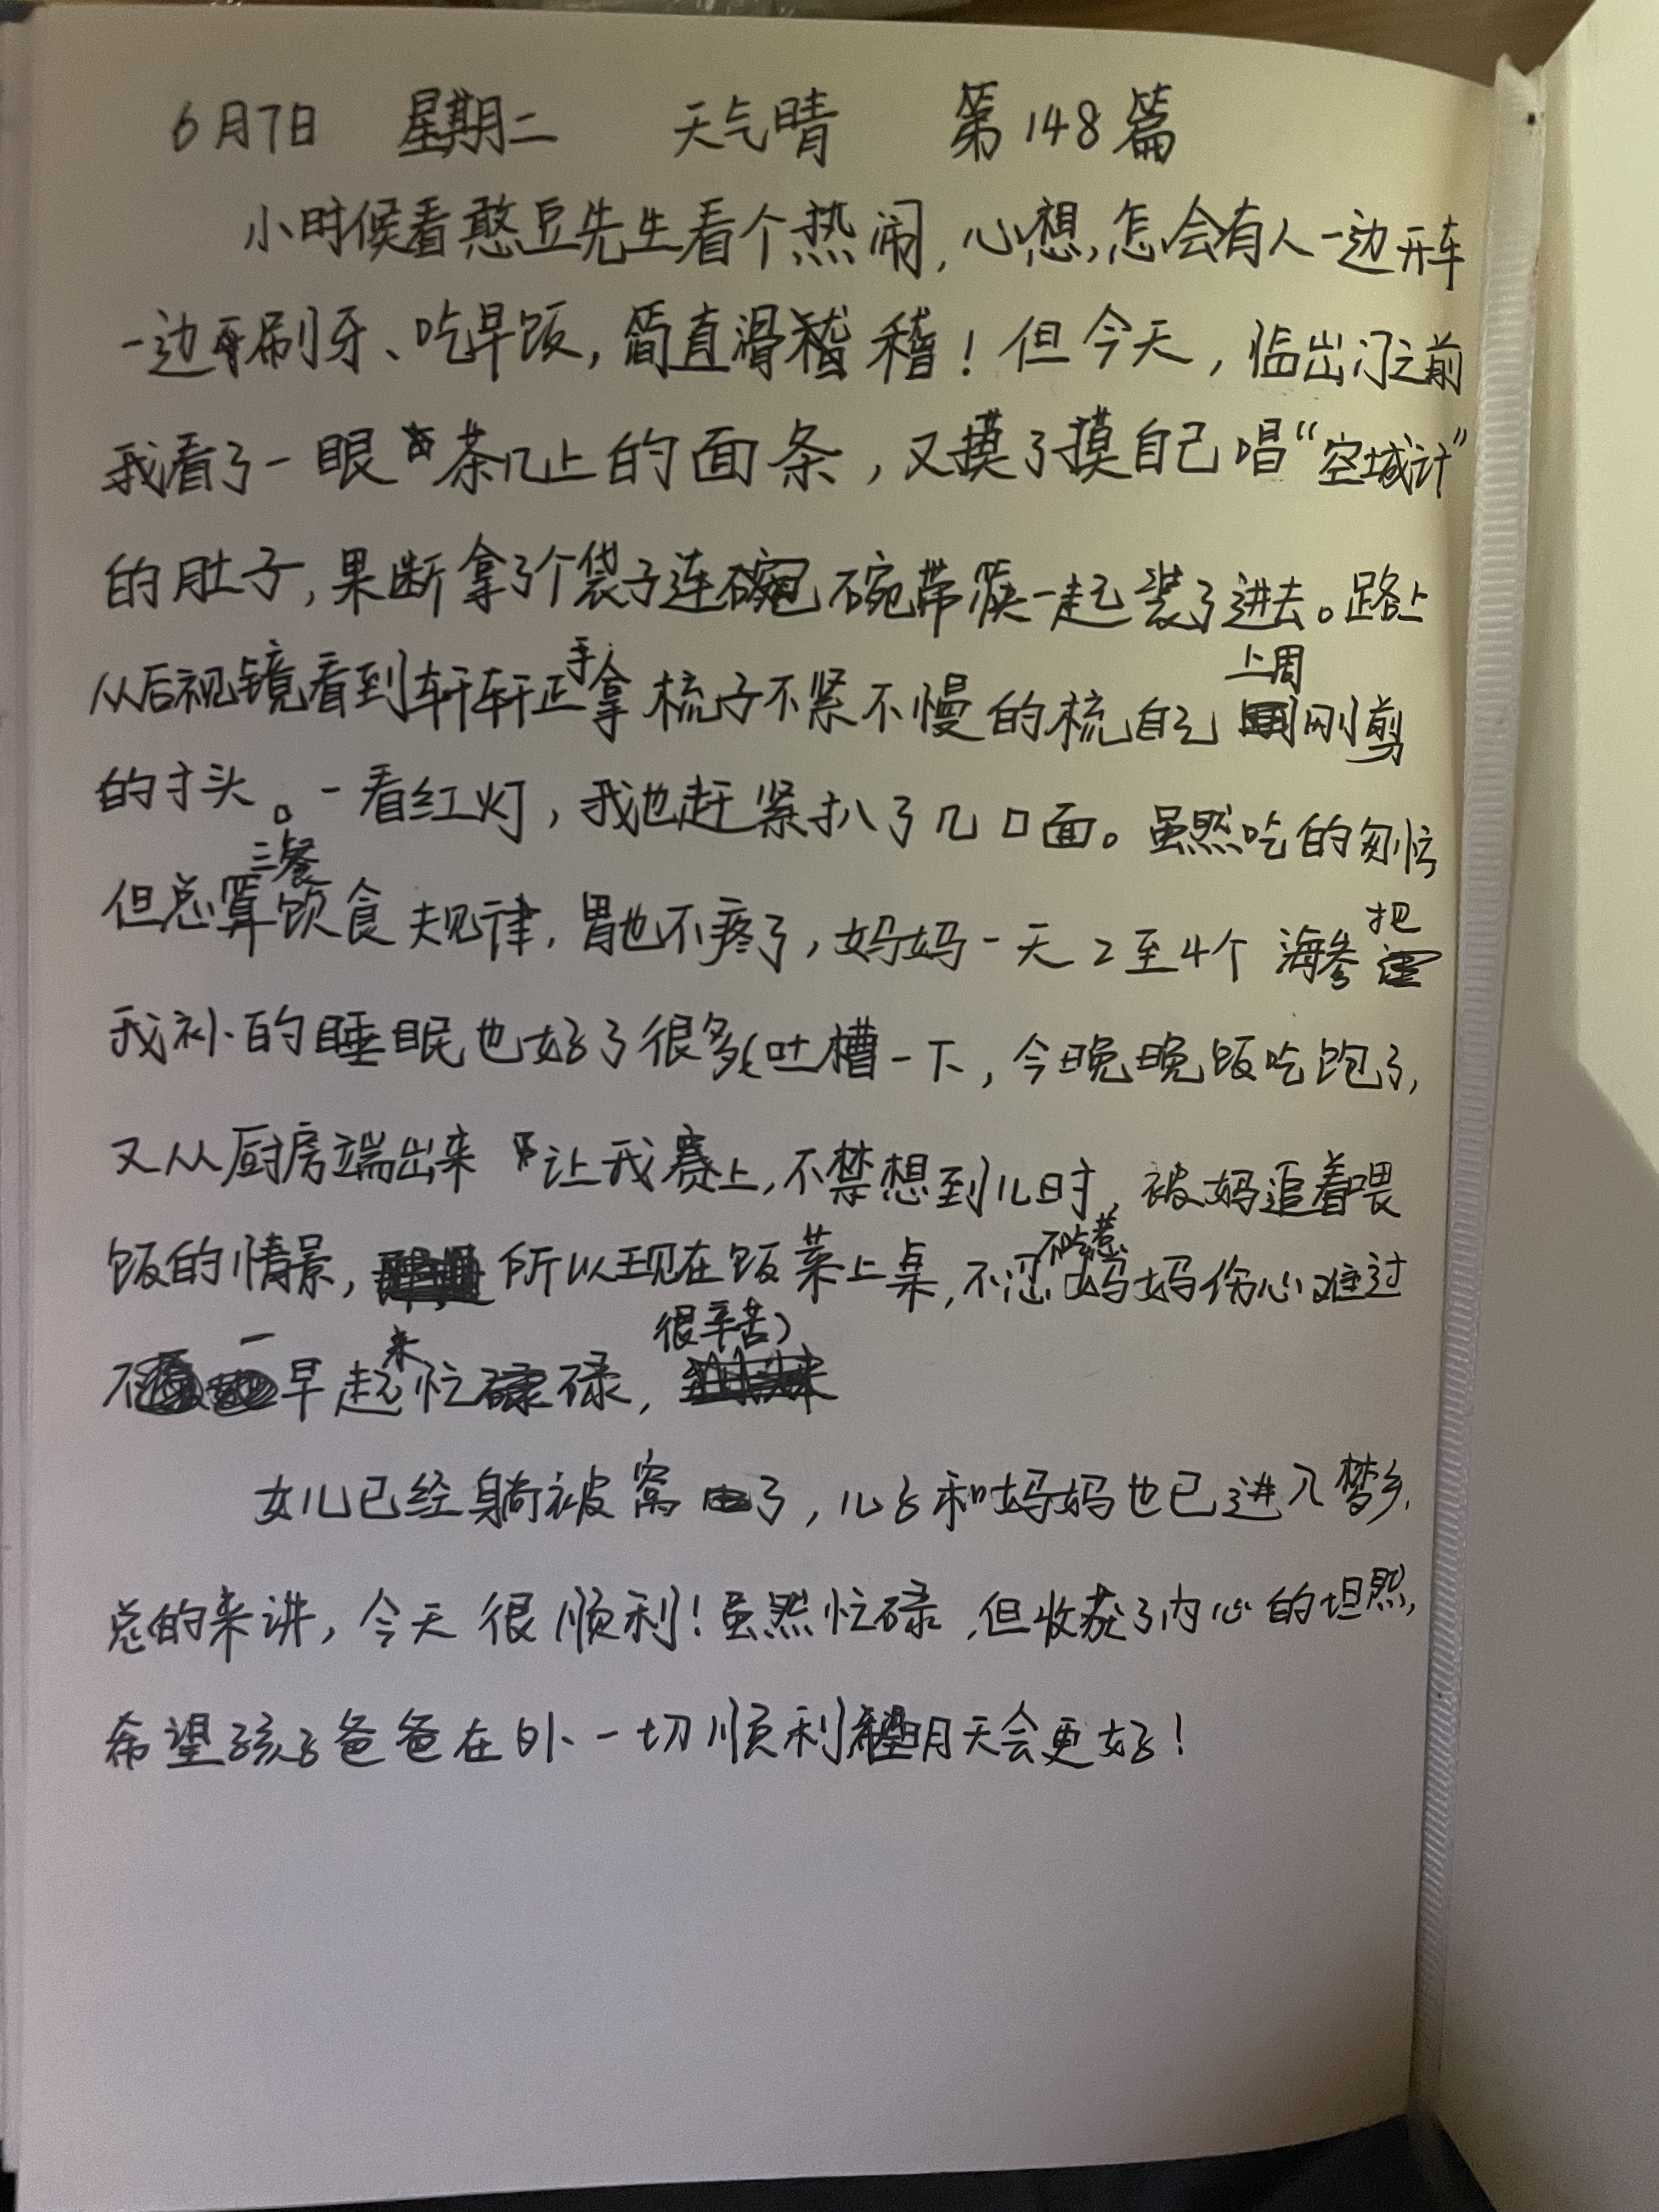 6月7日 星期二 天气晴 第148篇
小时候看憨豆先生看个热闹,心想,怎会有人一边开车
一边刷牙、吃早饭,简直滑稽!但今天,临出门之前
我看了一眼茶几上的面条,又摸了摸自己唱“空城计”
的肚子,果断拿了个袋子连碗带筷一起装了进去。路上
从后视镜看到轩轩正手拿梳子不紧不慢的梳自己上周刚剪
的寸头。一看红灯,我也赶紧扒了几口面。虽然吃的匆忙
但总算三餐饮食规律,胃也不疼了,妈妈一天2至4个海参把
我补的睡眠也好了很多(吐槽一下,今晚晚饭吃饱了,
又从厨房端出来让我赛上,不禁想到儿时,被妈追着喂
饭的情景,所以现在饭菜上桌,不忍妈妈伤心难过
一早起来忙碌,很辛苦)
女儿已经躺被窝了,儿子和妈妈也已进入梦乡.
总的来讲,今天很顺利!虽然忙碌,但收获了内心的坦然,
希望孩子爸爸在外一切顺利明天会更好!